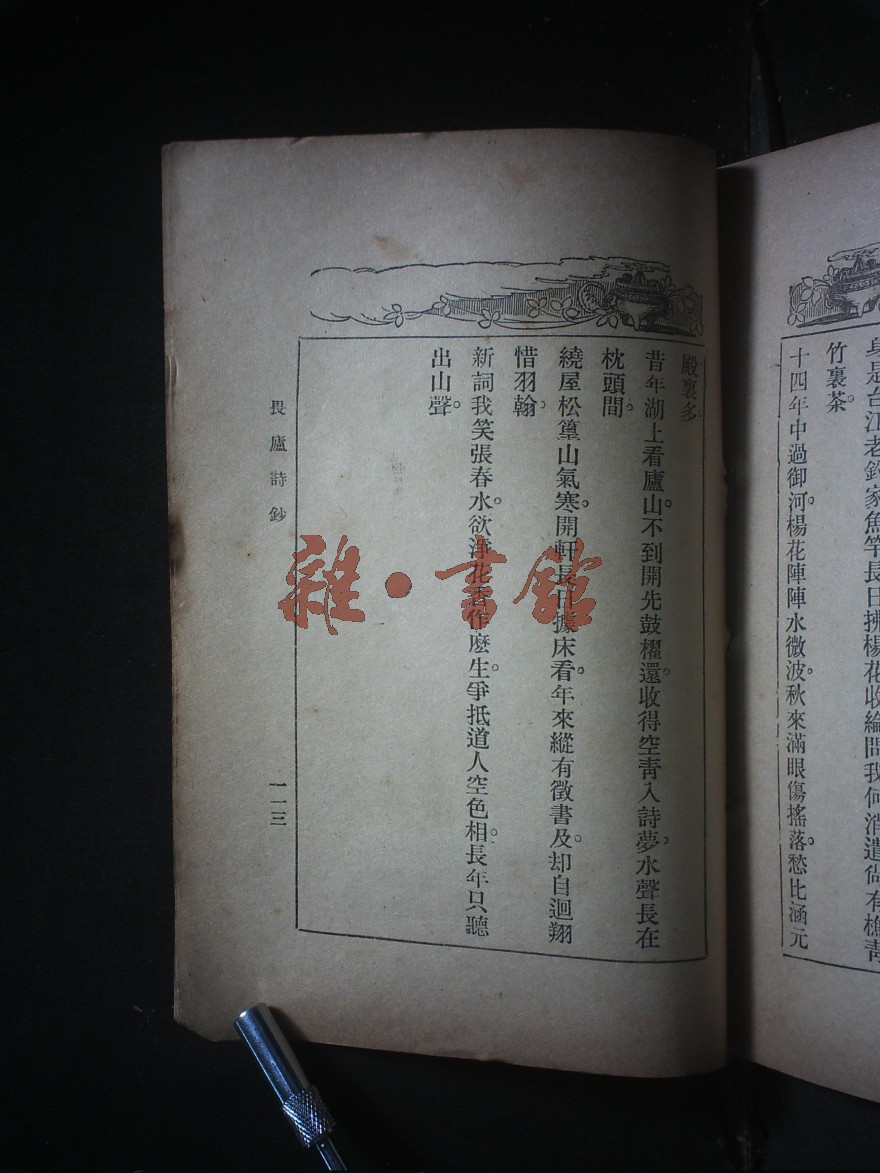 身是台江老釣家魚竿長日拂楊花收綸問我何消遣尙有樵靑
竹裏茶。
十四年中過御河。楊花陣陣水微波。秋來滿眼傷搖落。愁比涵元
殿裏多。
昔年湖上看廬山。不到開先鼓櫂還。收得空靑入詩夢。水聲長在
枕頭間。
繞屋松篁山氣寒。開軒長日據床看。年來縱有徵書及。却自迴翔
惜羽翰。
新詞我笑張春水。欲淨花香作麽生。爭抵道人空色相。長年只聽
出山聲。
畏廬詩鈔
一一三
雜·書館